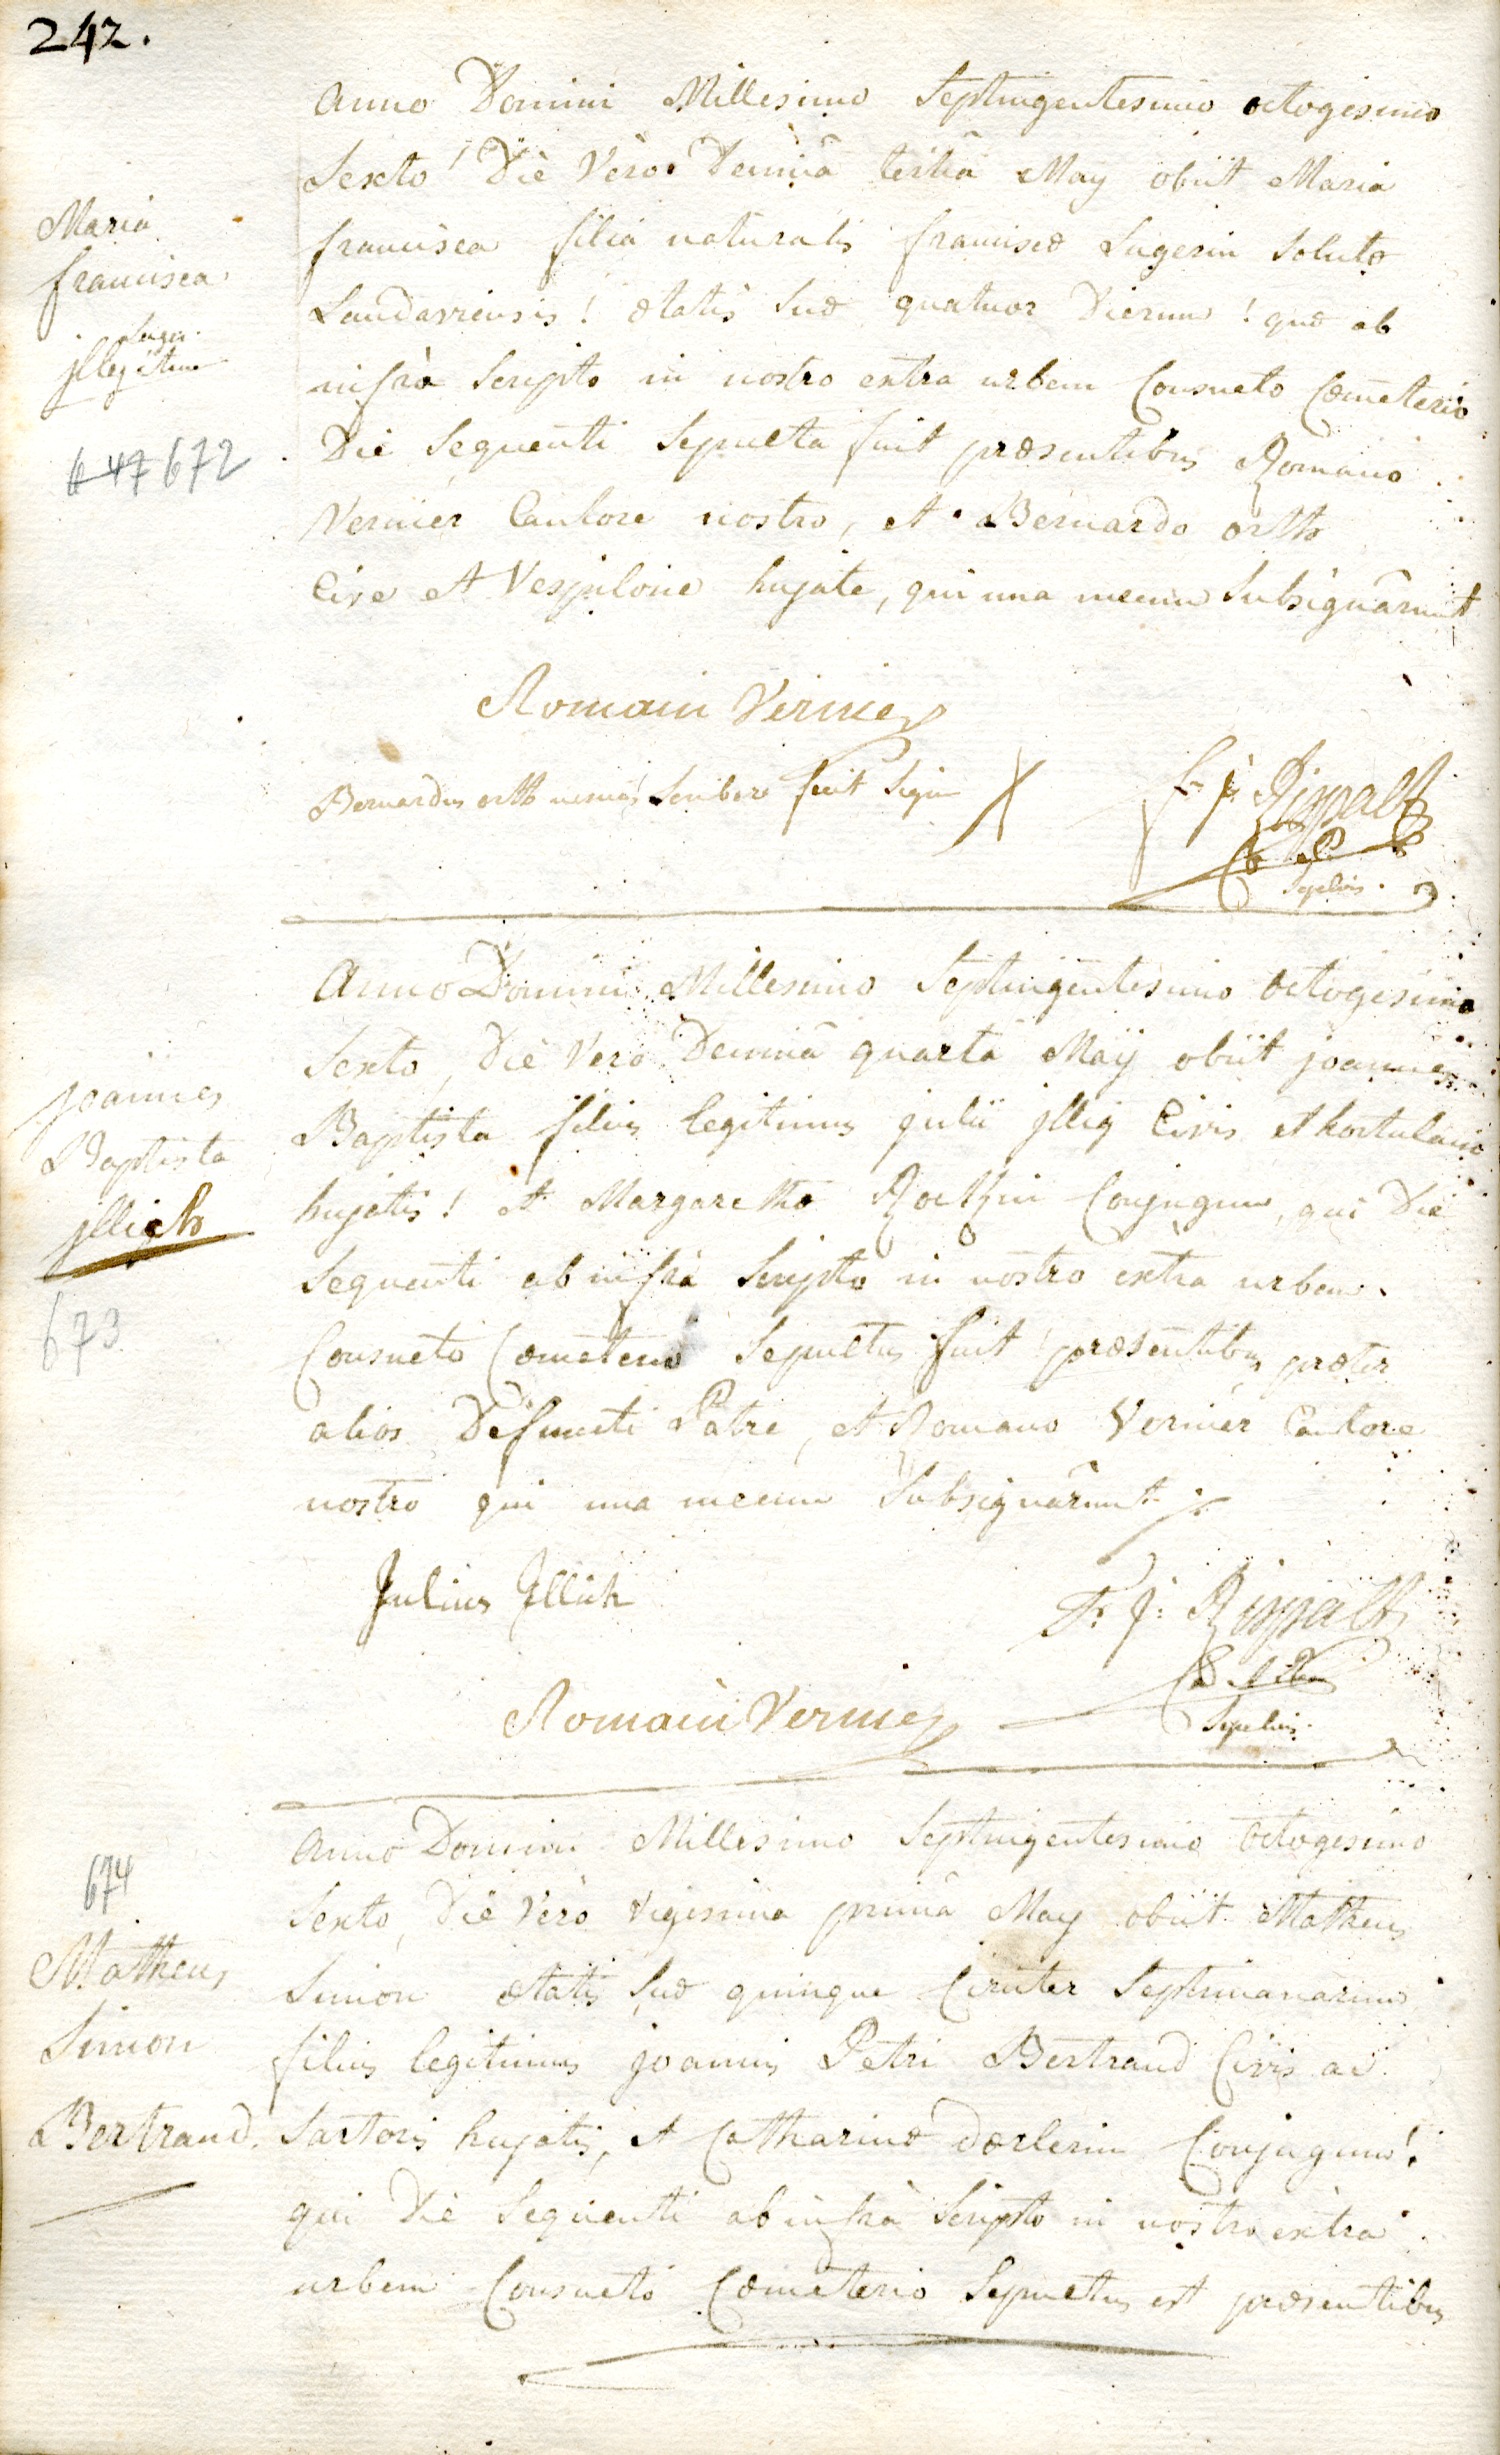 242.
Anno Domini Millesimo Septingentesimo octogesimo
Sexto! Die Vero Decima tertia May obiit Maria
Maria
francisca
Luger.
illegitima
francisca filia naturalis franciscæ Lugerin Solutæ
Landaviensis! ætatis Suæ quatuor Dierum! quæ ab
infrà Scripto in nostro extra urbem Consueto Cœmeterio
647 672
Die Sequenti Sepulta fuit præsentibus Romano
Vernier Cantore nostro, et Bernardo ortth
Cive et Vespilone hujate, qui una mecum Subsignârunt
Romain Vernier
Bernardus ortth nescius Scribere fecit Signum X
f. j. Rippalt
C P
Sepelivi.
Anno Domini Millesimo Septingentesimo octogesimo
Sexto, Die Vero Decimâ quartâ Maÿ obiit joannes
joannes
Baptista
jllich
673
Baptista filius legitimus julii jllig Civis et hortulani
hujatis! et Margarethæ Conjugum, qui Die
Sequenti ab infrà Scripto in nostro extra urbem
Consueto Cœmeterio Sepultus fuit! præsentibus præter
alios Defuncti Patre, et Romano Vernier Cantore
nostro qui una mecum Subsignârunt
Julius Jllich
F. j. Rippalt
Romain Vernier
Sepelivi.
Anno Domini Millesimo Septingentesimo Octogesimo
674
Sexto, Die Verò vigesima primâ May obiit Matheus
Matheus
Simon
Bertrand.
Simon ætatis Suæ quinque Circiter Septimanarum
filius legitimus joannis Petri Bertrand Civis ac
Sartoris hujatis, et Catharinæ dœrlerin Conjugum!
qui Die Sequenti ab infrà Scripto in nostro extra
urbem Consueto Cœmeterio Sepultus est præsentibus